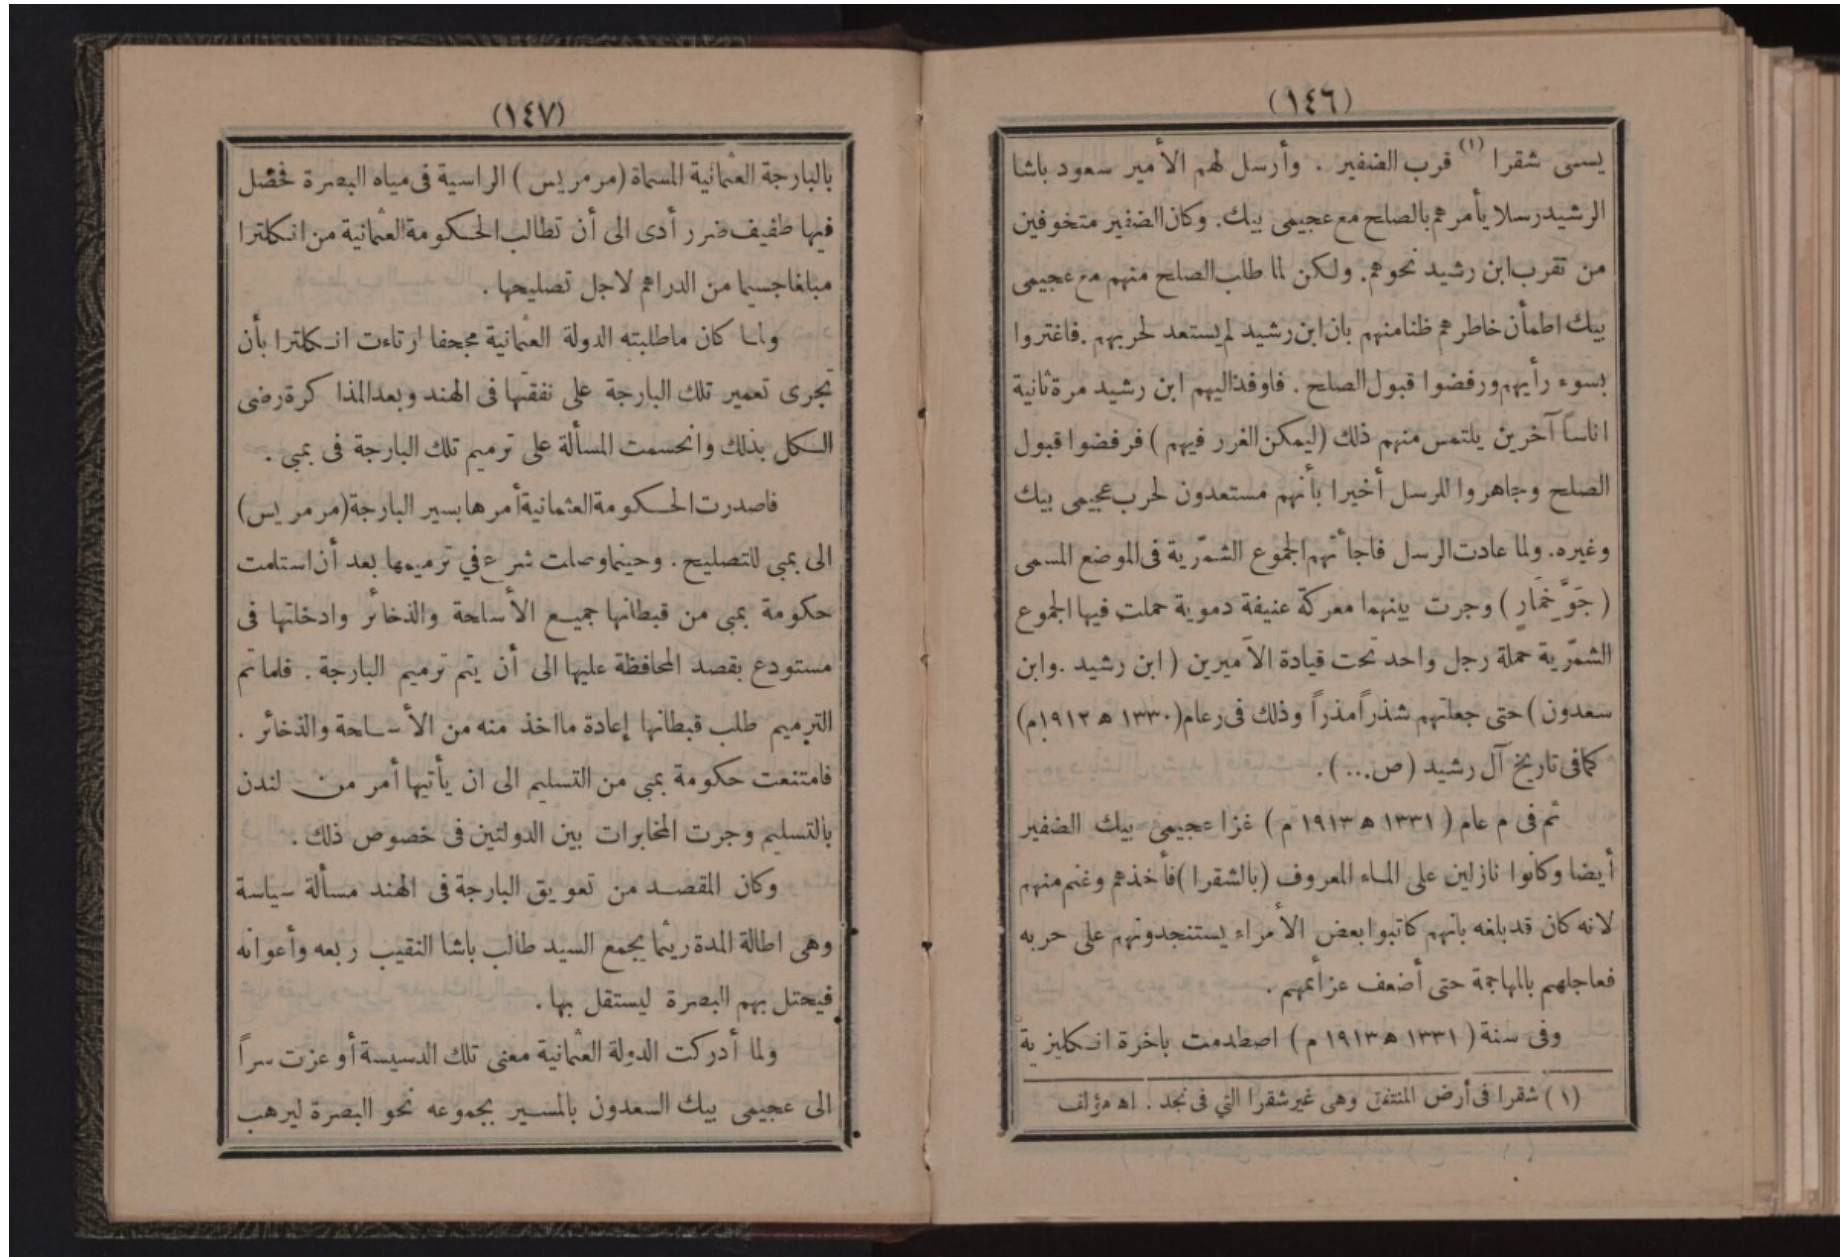 (١٤٦)
يسمى شقرا (١) قرب الضفير . وأرسل لهم الأمير سعود باشا
الرشيد رسلا يأمرهم بالصلح مع عجيمى بيك. وكان الضفير متخوفين
من تقرب ابن رشيد نحوهم. ولكن لما طلب الصلح منهم مع عجيمى
بيك اطمأن خاطرهم ظنا منهم بان ابن رشيد لم يستعد لحربهم . فاغتروا
بسوء رأيهم ورفضوا قبول الصلح . فاوفد اليهم ابن رشيد مرة ثانية
اناساً آخرين يلتمس منهم ذلك (ليمكن الغرر فيهم) فرفضوا قبول
الصلح وجاهروا للرسل أخيرا بأنهم مستعدون لحرب عجيمى بيك
وغيره. ولما عادت الرسل فاجأتهم الجموع الشمّرية فى الموضع المسمى
( جَوَّ خَمَارٍ ) وجرت بينهما معركة عنيفة دموية حملت فيها الجموع
الشمّرية حملة رجل واحد تحت قيادة الأميرين ( ابن رشيد . وابن
سعدون ) حتى جعلتهم شذراً مذراً وذلك فى عام (١٣٣٠ ه ١٩١٢م)
كما فى تاريخ آل رشيد (ص...).
ثم فى م عام ( ١٣٣١ ه ١٩١٣ م ) غزا عجيمى بيك الضفير
أيضا وكانوا نازلين على الماء المعروف (بالشقرا) فأخذهم وغنم منهم
لانه كان قد بلغه بانهم كاتبوا بعض الأمراء يستنجدونهم على حربه
فعاجلهم بالمهاجمة حتى أضعف عزائمهم .
وفى سنة ( ١٣٣١ ه ١٩١٣ م ) اصطدمت باخرة انكليزية
(١) شقرا فى أرض المنتفق وهى غير شقرا التي فى نجد . اه مؤلف
(١٤٧)
بالبارجة العثمانية المسماة (مرمريس) الراسية فى مياه البصرة فحصل
فيها طفيف ضرر أدى الى أن تطالب الحكومة العثمانية من انكلترا
مبلغا جسيما من الدراهم لاجل تصليحها .
ولما كان ما طلبته الدولة العثمانية مجحفا ارتاءت انكلترا بأن
تجرى تعمير تلك البارجة على نفقتها فى الهند وبعد المذاكرة رضى
الكل بذلك وانحسمت المسألة على ترميم تلك البارجة فى بمبى .
فاصدرت الحكومة العثمانية أمرها بسير البارجة (مرمريس)
الى بمبى للتصليح . وحينما وصلت شرع في ترميمها بعد أن استلمت
حكومة بمبى من قبطانها جميع الأسلحة والذخائر وادخلتها فى
مستودع بقصد المحافظة عليها الى أن يتم ترميم البارجة . فلما تم
الترميم طلب قبطانها إعادة ما اخذ منه من الأسلحة والذخائر .
فامتنعت حكومة بمبى من التسليم الى ان يأتيها أمر من لندن
بالتسليم وجرت المخابرات بين الدولتين فى خصوص ذلك .
وكان المقصد من تعويق البارجة فى الهند مسألة سياسة
وهى اطالة المدة ريثما يجمع السيد طالب باشا النقيب ربعه وأعوانه
فيحتل بهم البصرة ليستقل بها .
ولما أدركت الدولة العثمانية معنى تلك الدسيسة أوعزت سراً
الى عجيمى بيك السعدون بالمسير بجموعه نحو البصرة ليرهب